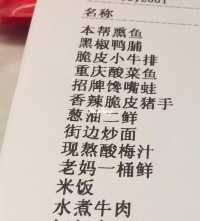 名称
本帮熏鱼
黑椒鸭脯
脆皮小牛排
重庆酸菜鱼
招牌馋嘴蛙
香辣脆皮猪手
葱油二鲜
街边炒面
现熬酸梅汁
老妈一桶鲜
米饭
水煮牛肉